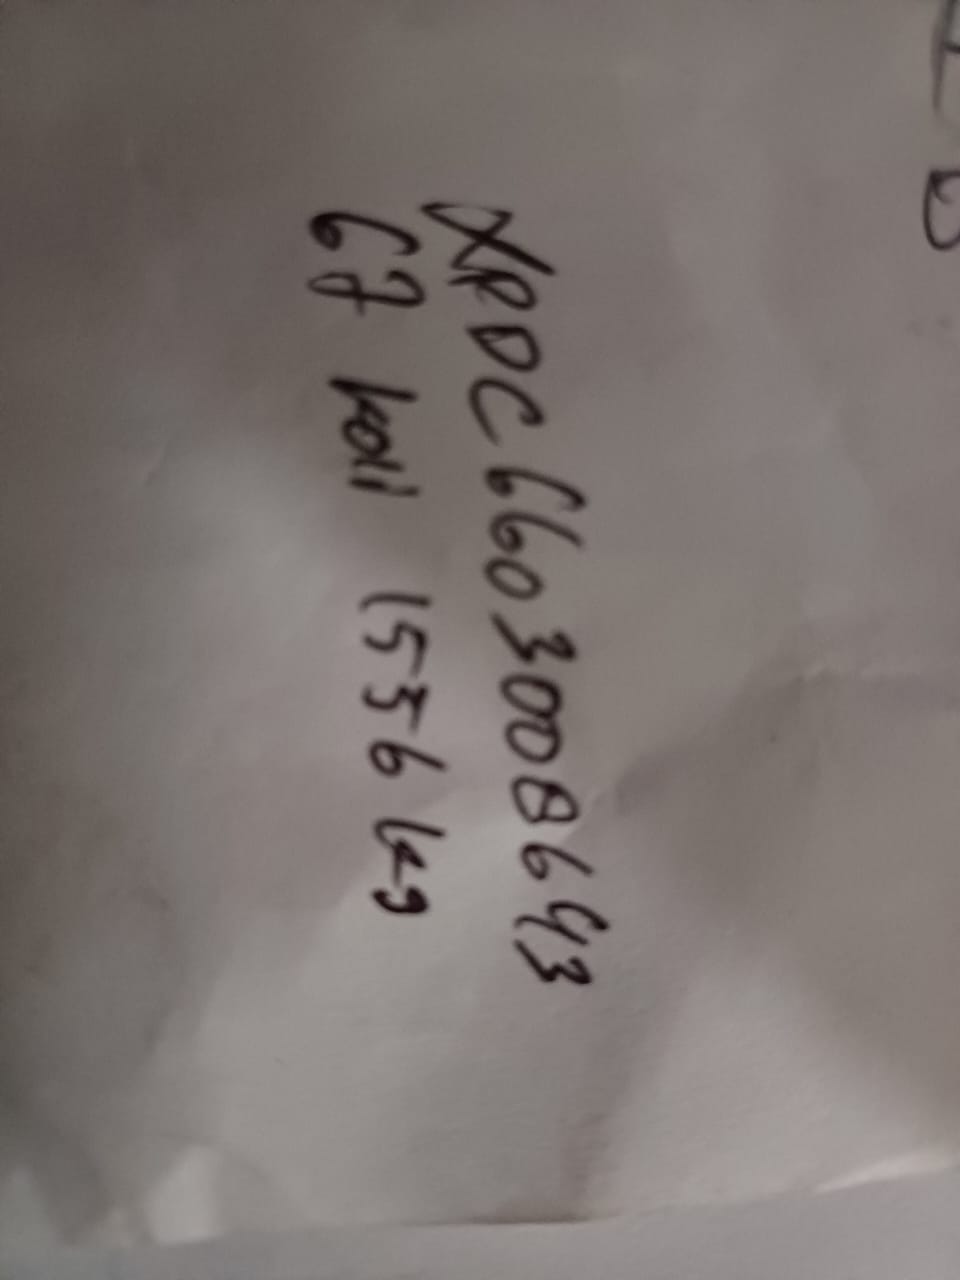 XPDC6603008643
67 koli 1556 kg